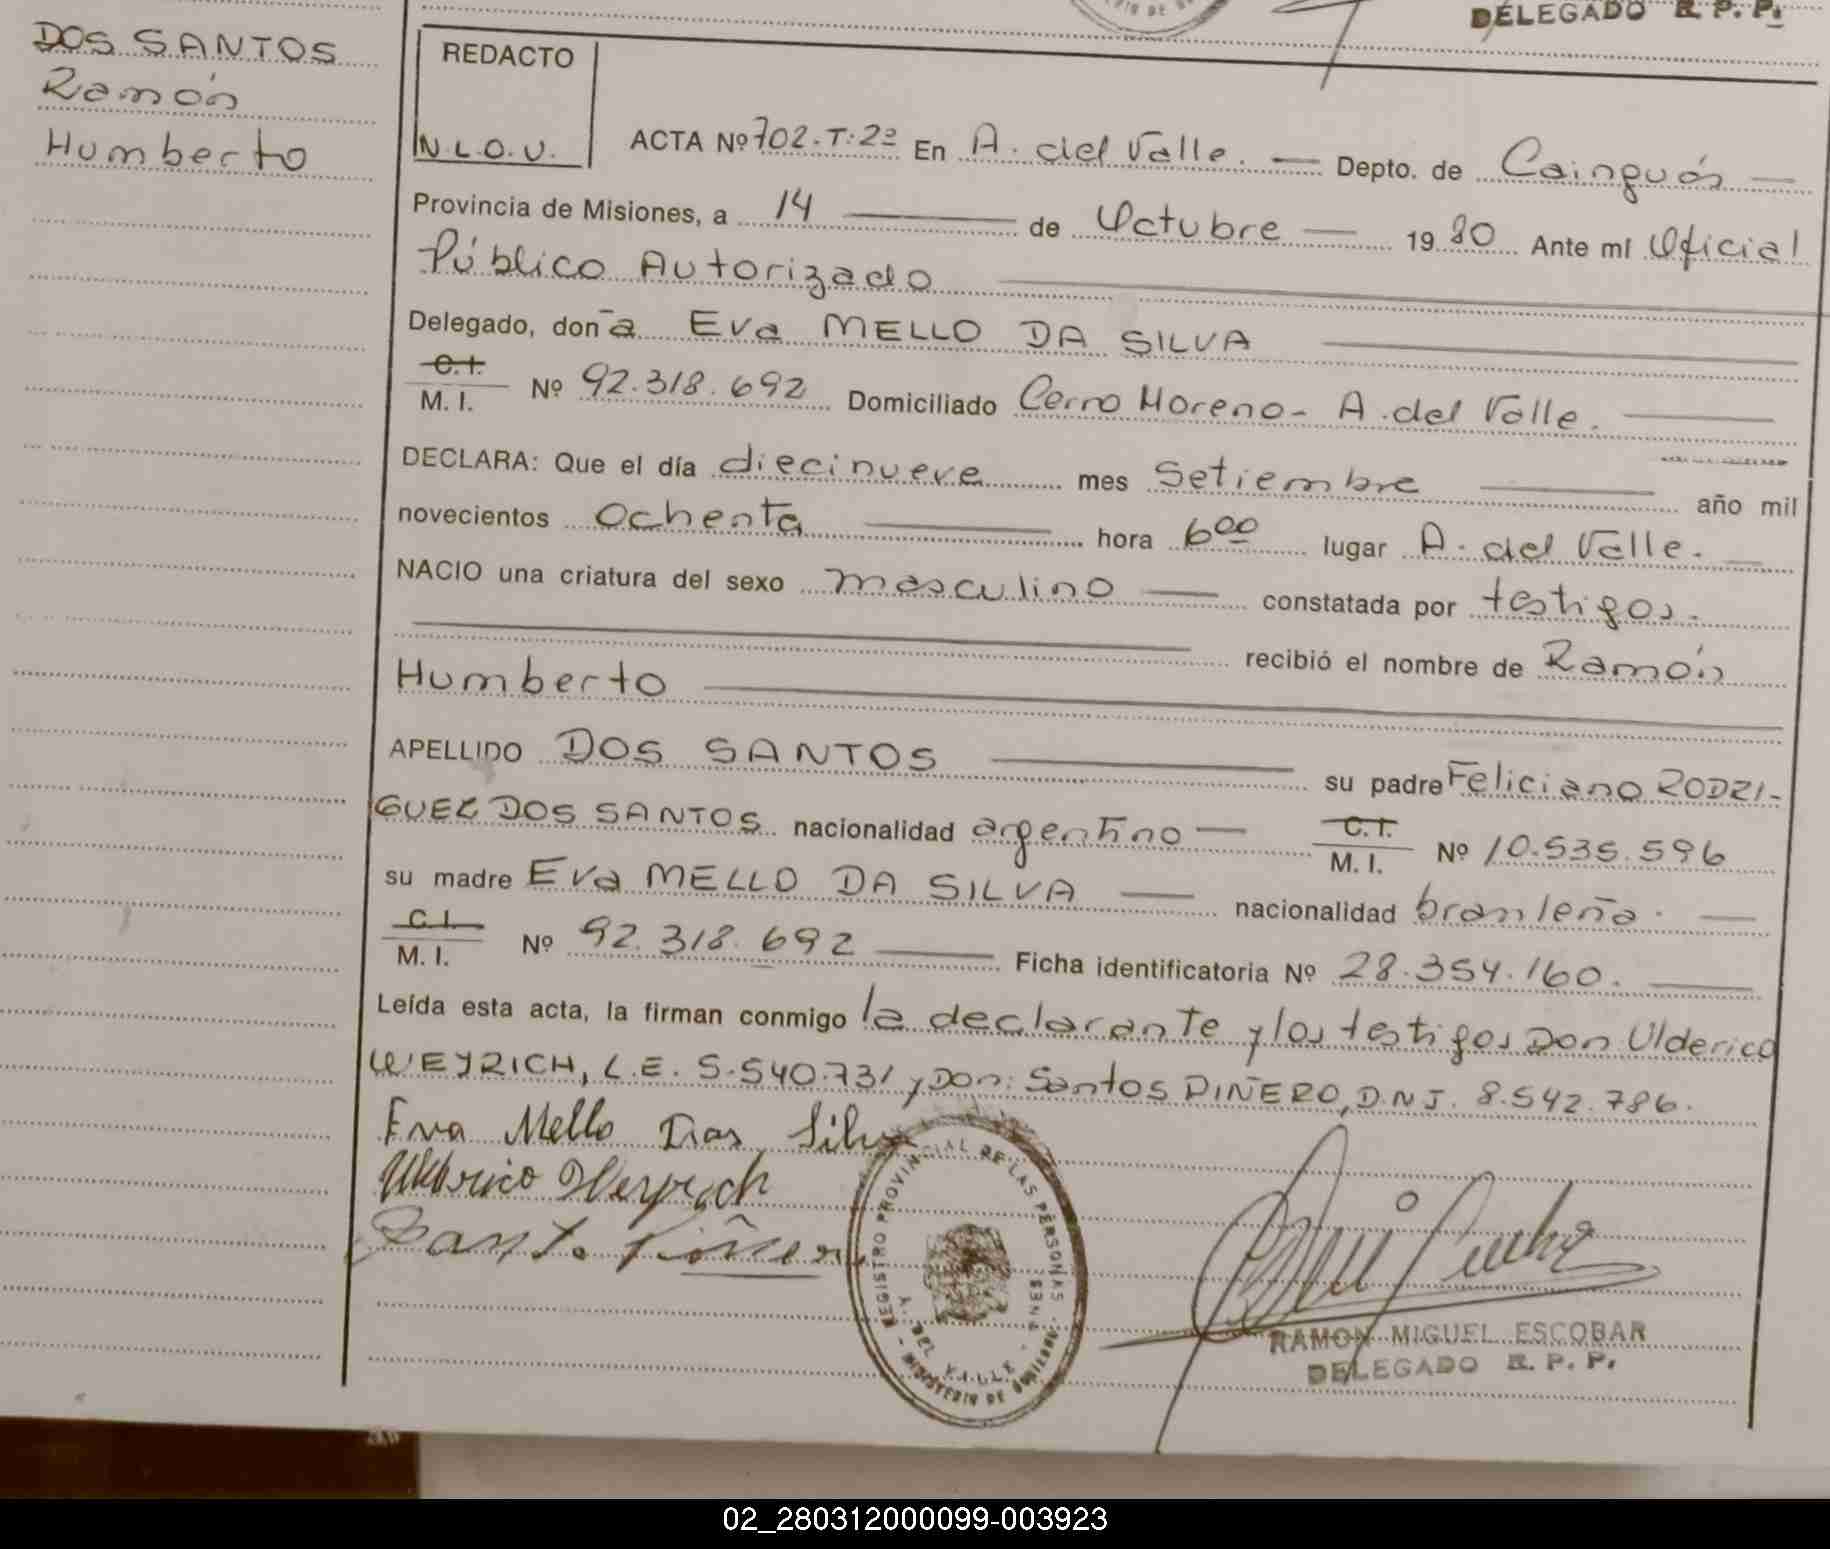 DELEGADO R. P. P.
DOS SANTOS
Ramón
Humberto
REDACTO
N.L.O.V.
ACTA Nº 702.T.2º En A. del Valle. — Depto. de Cainguás —
Provincia de Misiones, a 14 — de Octubre — 1980 Ante mí Oficial
Público Autorizado
Delegado, don ª Eva MELLO DA SILVA
C.I.
M. I. Nº 92.318.692 Domiciliado Cerro Moreno - A. del Valle.
DECLARA: Que el día diecinueve mes Setiembre — año mil
novecientos ochenta — hora 6 00 lugar A. del Valle.
NACIO una criatura del sexo masculino — constatada por testigos.
recibió el nombre de Ramón
Humberto
APELLIDO DOS SANTOS — su padre Feliciano RODRI-
GUEZ DOS SANTOS nacionalidad argentino — C.I. M. I. Nº 10.535.596
su madre Eva MELLO DA SILVA — nacionalidad brasileña. —
C.I.
M. I. Nº 92.318.692 — Ficha identificatoria Nº 28.354.160. —
Leída esta acta, la firman conmigo la declarante y los testigos Don: Ulderico
WEYRICH, L.E. 5.540.731 y Don: Santos PIÑERO, D.N.I. 8.542.786.
Eva Mello Das Silva
Ulderico Weyrich
Santo Piñero
REGISTRO PROVINCIAL DE LAS PERSONAS
MINISTERIO DE GOBIERNO
A. DEL VALLE
RAMON MIGUEL ESCOBAR
DELEGADO R. P. P.
02_280312000099-003923